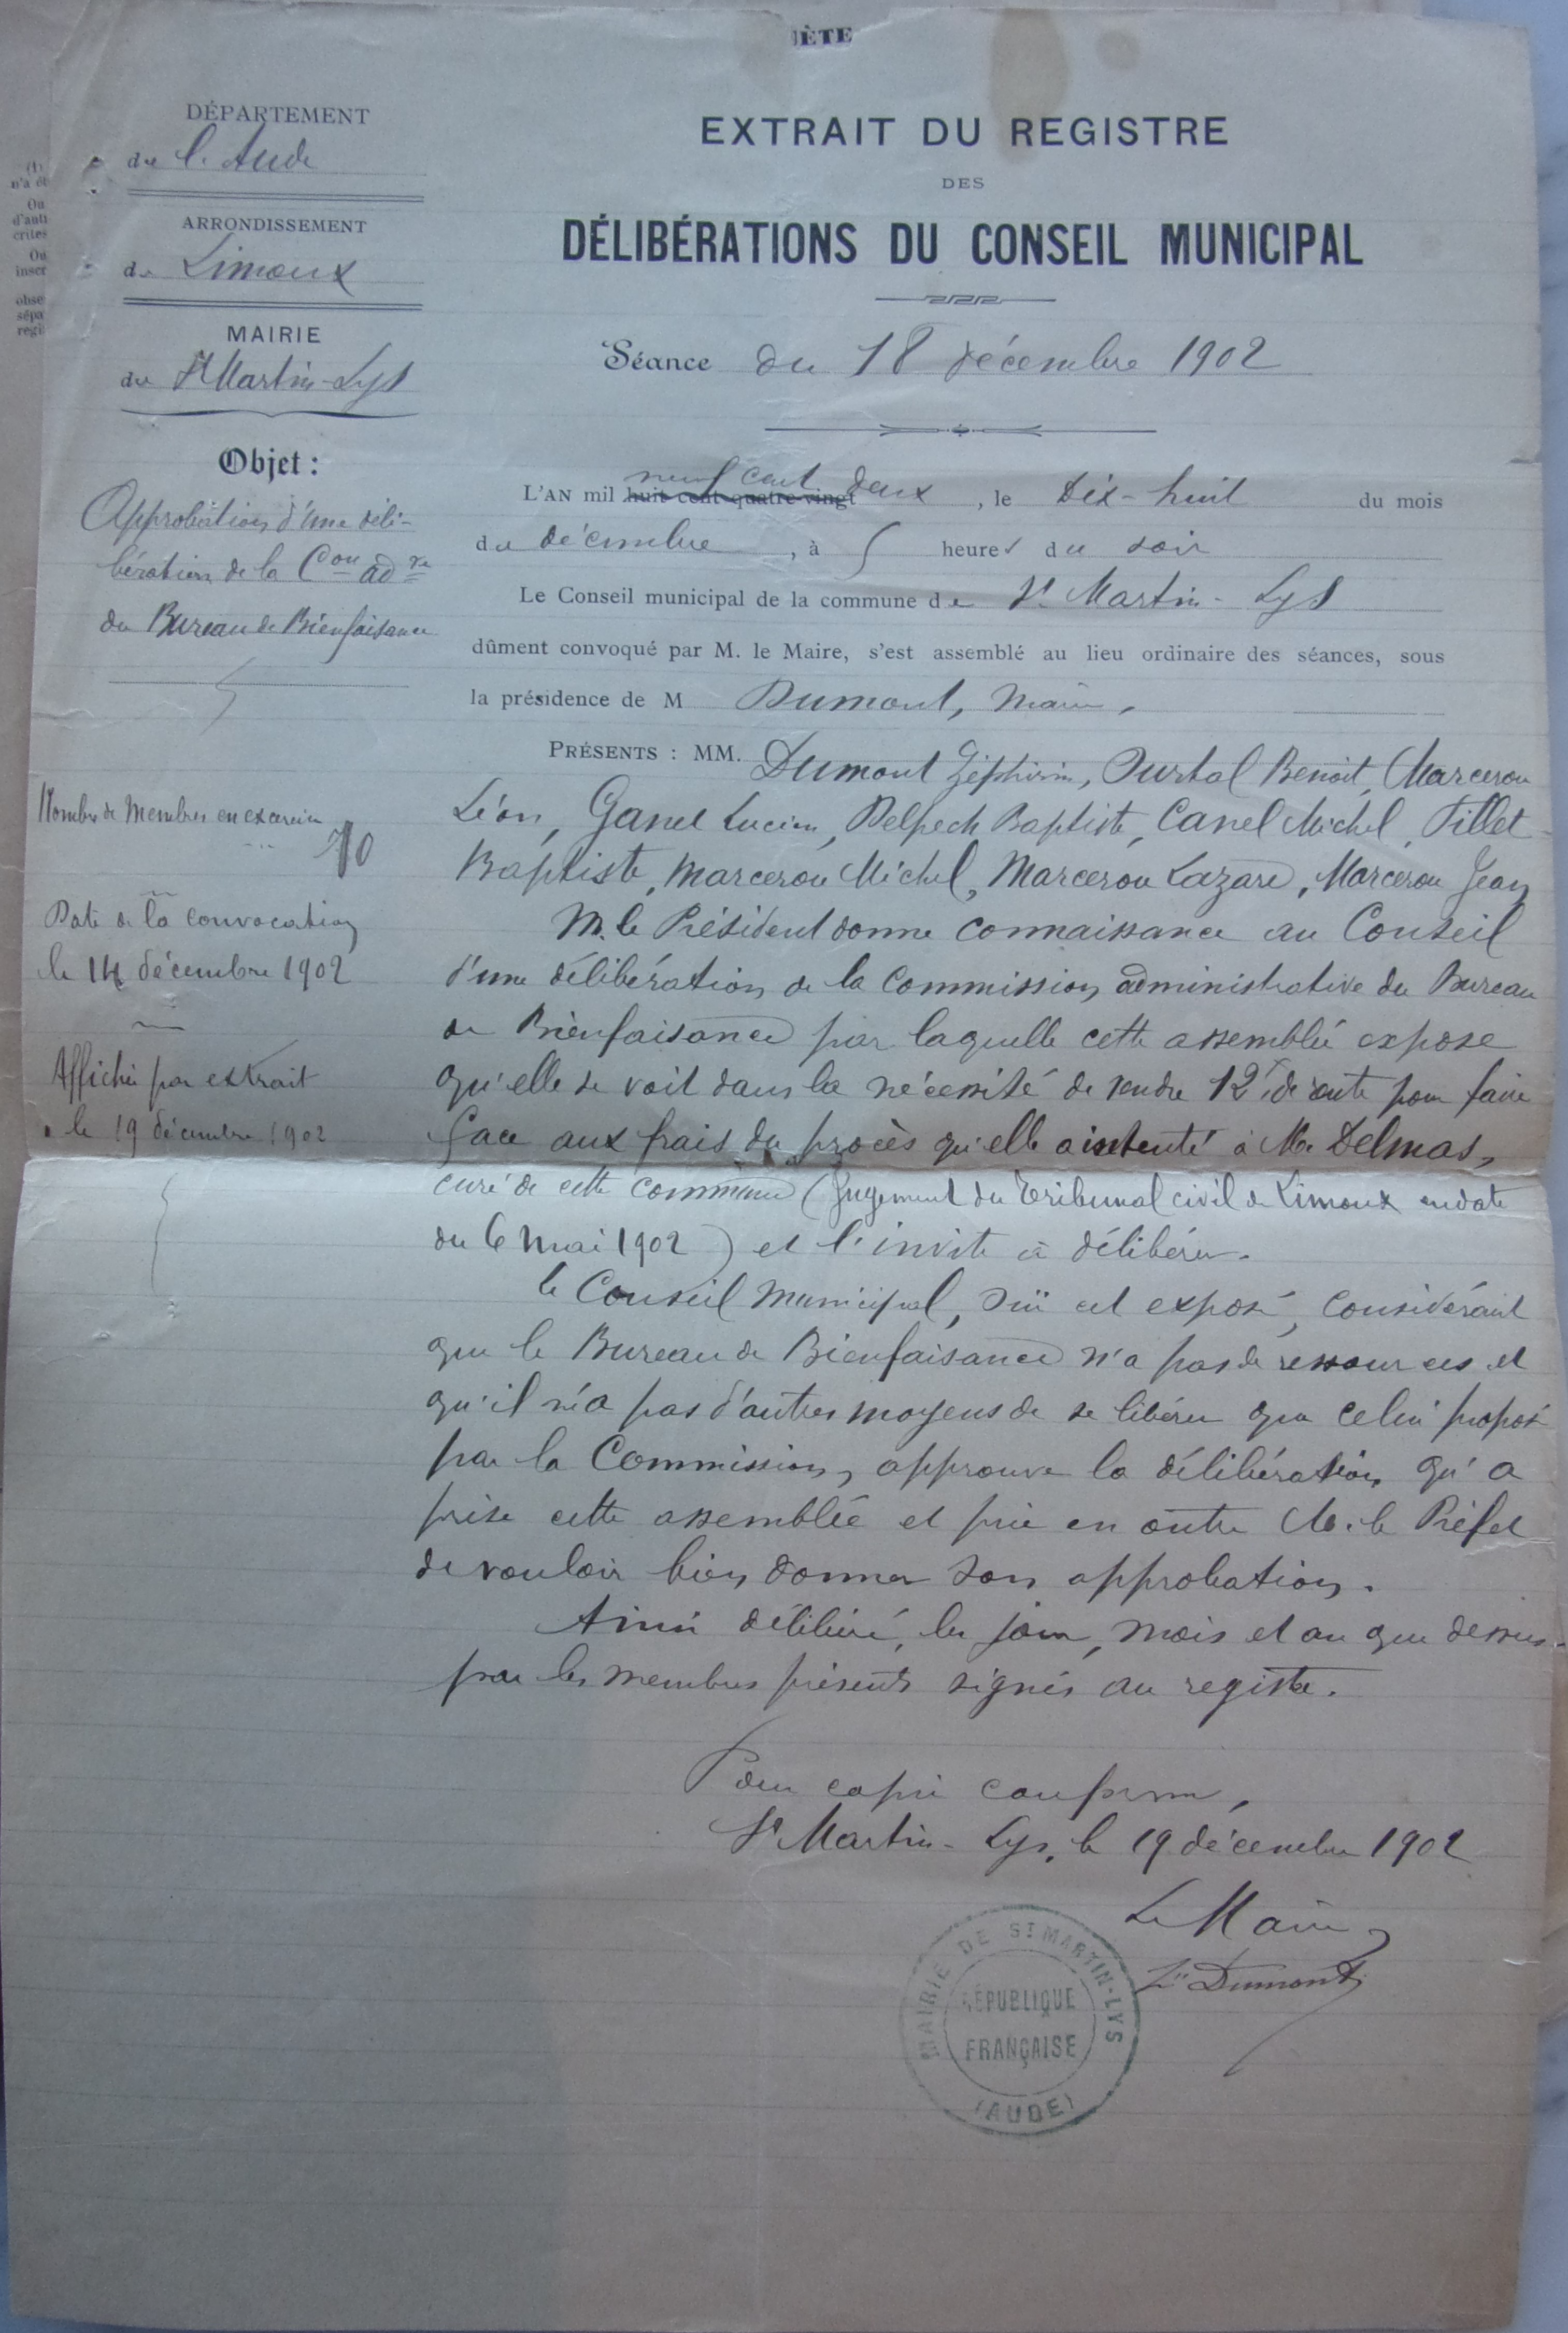 IÈTE
DÉPARTEMENT
de l'Aude
ARRONDISSEMENT
de Limoux
MAIRIE
de St Martin-Lys
Objet :
Approbation d'une déli-
bération de la Con adve
du Bureau de Bienfaisance
Nombre de Membres en exercice
10
Date de la convocation
le 14 décembre 1902
Affiché par extrait
le 19 décembre 1902
(1)
n'a ét
Ou
d'aut
crites
Ou
inscr
obse
sépa
regi
EXTRAIT DU REGISTRE
DES
DÉLIBÉRATIONS DU CONSEIL MUNICIPAL
Séance du 18 décembre 1902
neuf cent
L'AN mil huit cent quatre-vingt deux , le Dix-huit du mois
de décembre , à 5 heures du soir
Le Conseil municipal de la commune de St Martin-Lys
dûment convoqué par M. le Maire, s'est assemblé au lieu ordinaire des séances, sous
la présidence de M Dumont, maire,
PRÉSENTS : MM. Dumont Zéphirin, Ourtal Benoit, Marcerou
Léon, Ganel Lucien, Delpech Baptiste, Canel Michel, Tillet
Baptiste, Marcerou Michel, Marcerou Lazare, Marcerou Jean
M. le Président donne connaissance au Conseil
d'une délibération de la Commission administrative du Bureau
de Bienfaisance par laquelle cette assemblée expose
qu'elle se voit dans la nécessité de vendre 12f de rente pour faire
face aux frais du procès qu'elle a intenté à M. Delmas,
curé de cette commune (Jugement du Tribunal civil de Limoux en date
du 6 mai 1902) et l'invite à délibérer.
le Conseil Municipal, ouï cet exposé, considérant
que le Bureau de Bienfaisance n'a pas de ressources et
qu'il n'a pas d'autres moyens de se libérer que celui proposé
par la Commission, approuve la délibération qu'a
prise cette assemblée et prie en outre M. le Préfet
de vouloir bien donner son approbation.
Ainsi délibéré, les jour, mois et an que dessus
par les membres présents signés au registre.
Pour copie conforme,
St Martin-Lys, le 19 décembre 1902
Le Maire
Zin Dumont
MAIRIE DE ST MARTIN-LYS
RÉPUBLIQUE
FRANÇAISE
(AUDE)